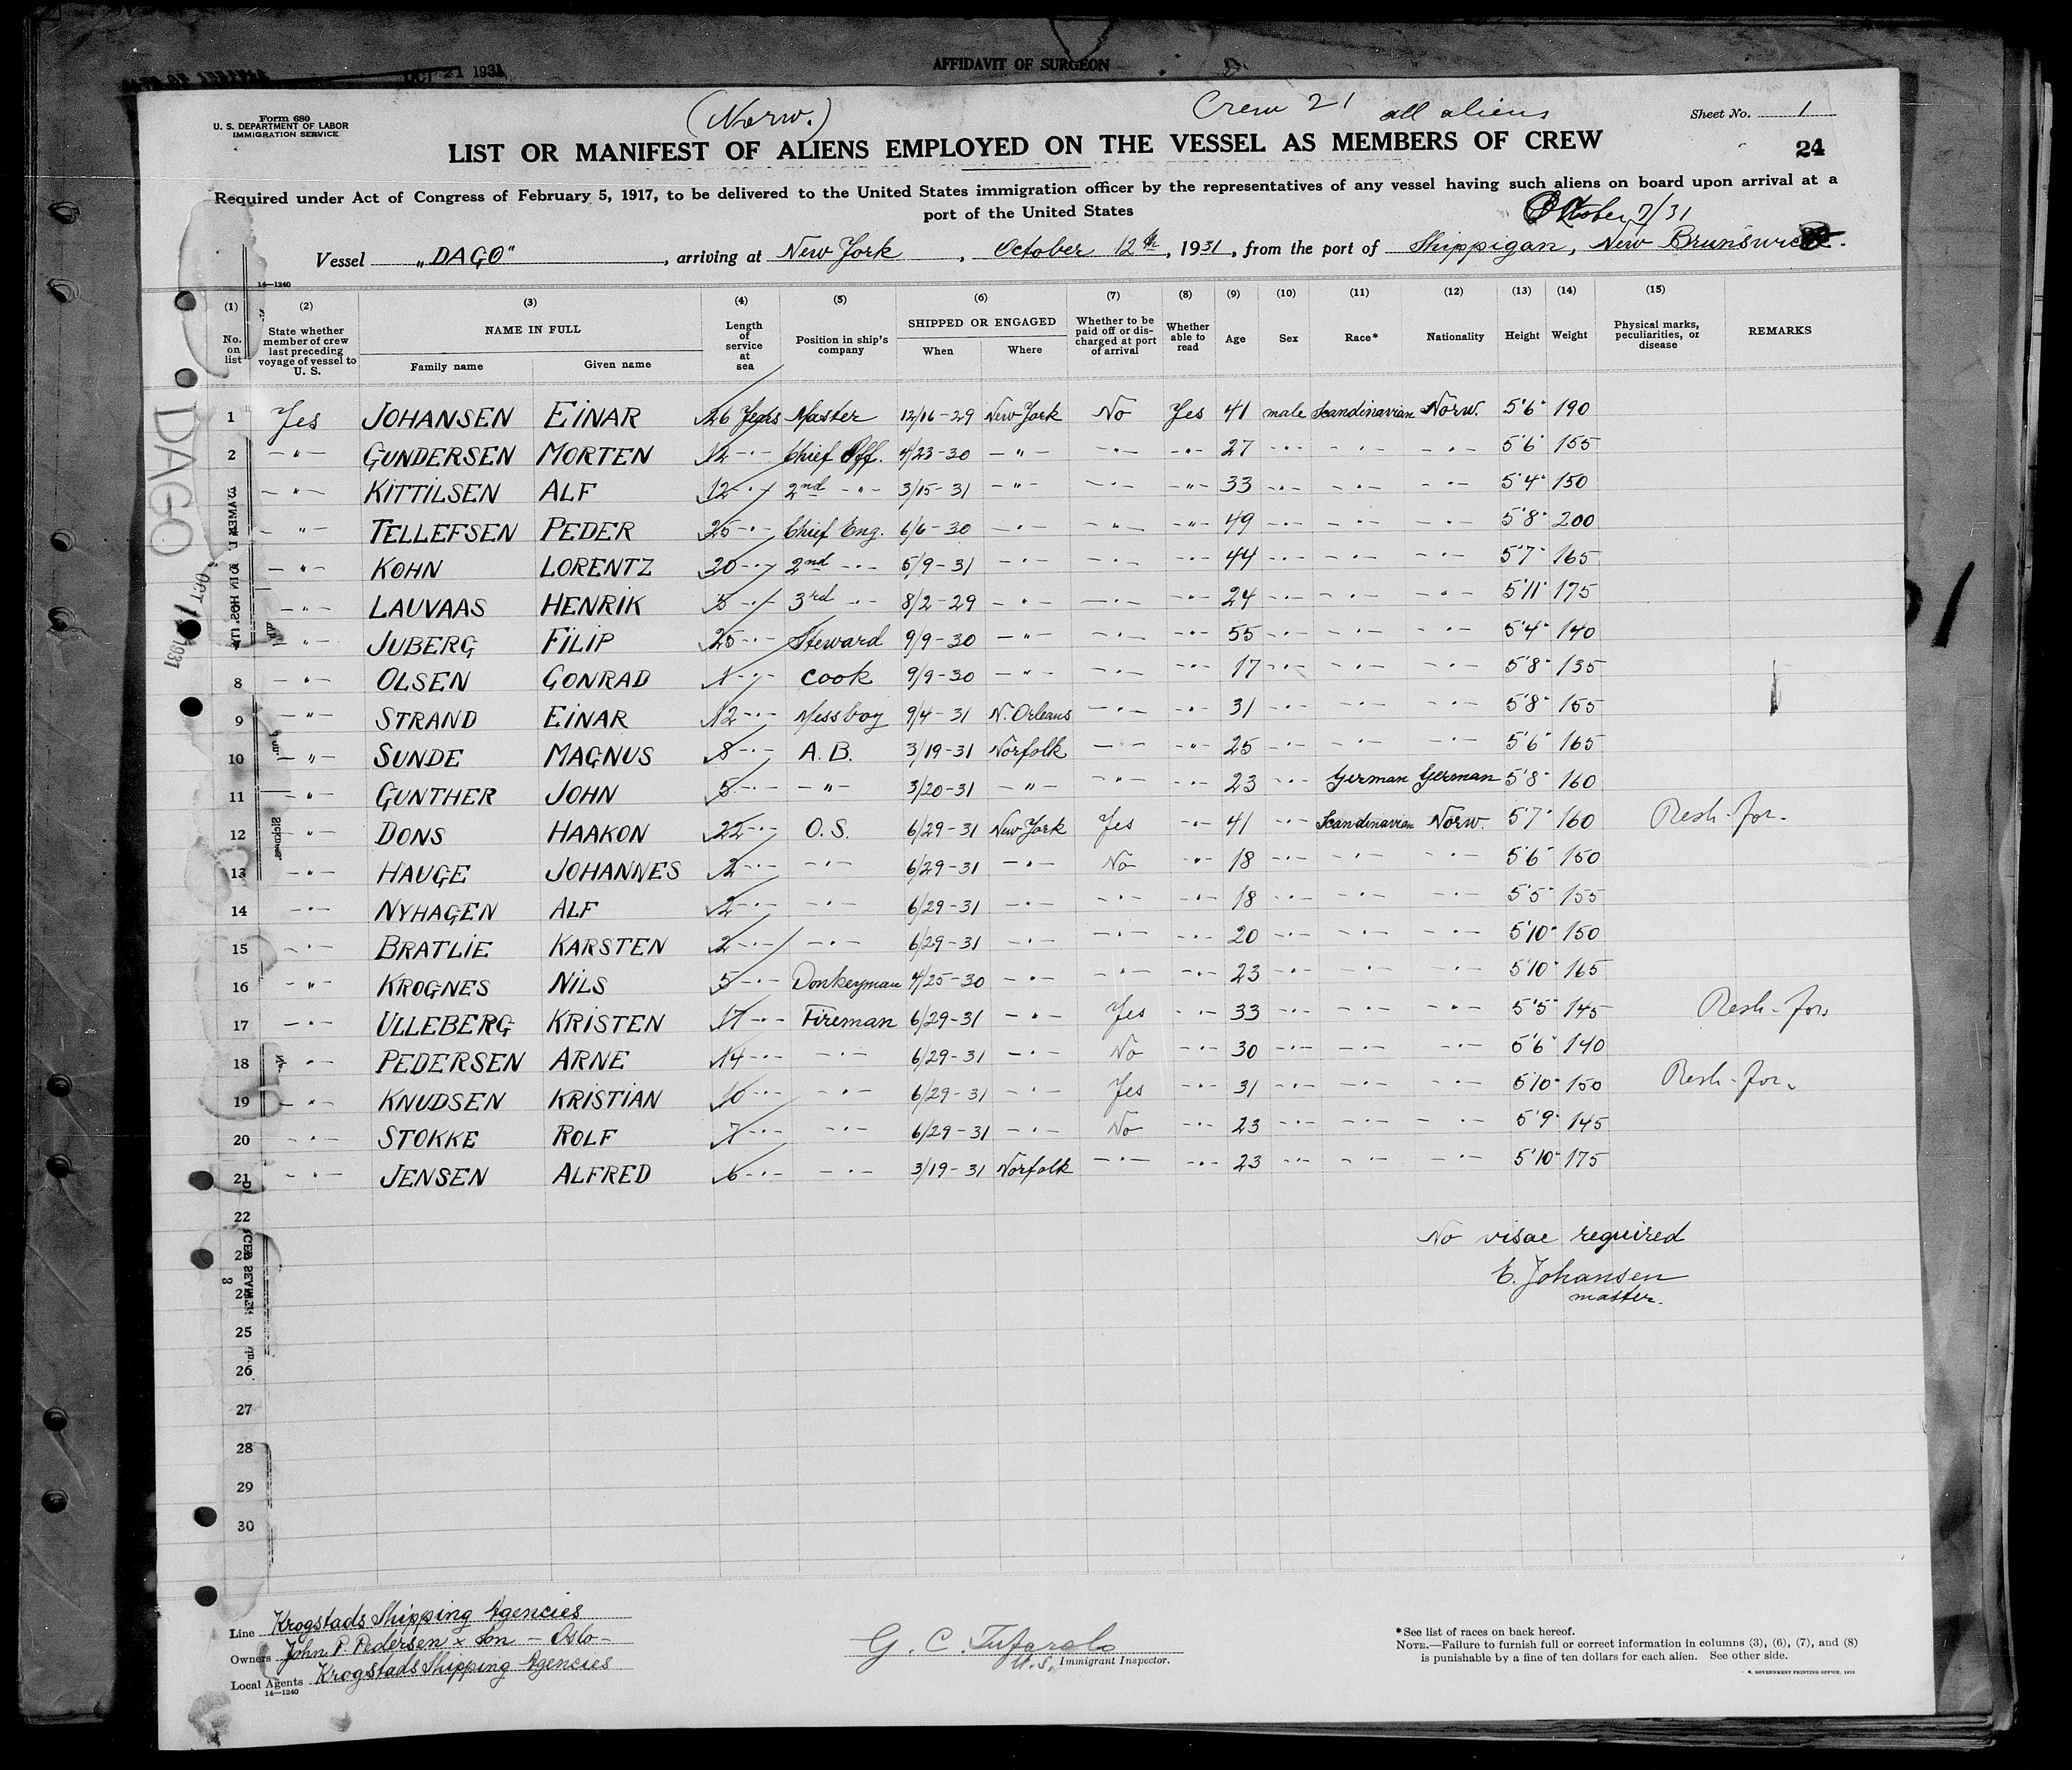 AFFIDAVIT OF SURGEON
OCT 21 1931
Form 680
U. S. DEPARTMENT OF LABOR
IMMIGRATION SERVICE
(Norw.)
Crew 21 all aliens
Sheet No. 1
LIST OR MANIFEST OF ALIENS EMPLOYED ON THE VESSEL AS MEMBERS OF CREW
24
Required under Act of Congress of February 5, 1917, to be delivered to the United States immigration officer by the representatives of any vessel having such aliens on board upon arrival at a
port of the United States
October 7/31
Vessel "DAGO", arriving at New York, October 12th, 1931, from the port of Shippigan, New Brunswick.
14—1240
(1) (2) (3) (4) (5) (6) (7) (8) (9) (10) (11) (12) (13) (14) (15)
No. on list
State whether member of crew last preceding voyage of vessel to U. S.
NAME IN FULL
Family name
Given name
Length of service at sea
Position in ship's company
SHIPPED OR ENGAGED
When
Where
Whether to be paid off or discharged at port of arrival
Whether able to read
Age
Sex
Race*
Nationality
Height
Weight
Physical marks, peculiarities, or disease
REMARKS
1 Yes JOHANSEN EINAR 26 Years Master 12/16-29 New York No Yes 41 male Scandinavian Norw. 5'6" 190
2 -"- GUNDERSEN MORTEN 12 -"- Chief Off. 4/23-30 -"- -"- -"- 27 -"- -"- -"- 5'6" 155
3 -"- KITTILSEN ALF 12 -"- 2nd -"- 3/15-31 -"- -"- -"- 33 -"- -"- -"- 5'4" 150
-"- TELLEFSEN PEDER 25 -"- Chief Eng. 6/6-30 -"- -"- -"- 49 -"- -"- -"- 5'8" 200
-"- KOHN LORENTZ 20 -"- 2nd -"- 5/9-31 -"- -"- -"- 44 -"- -"- -"- 5'7" 165
-"- LAUVAAS HENRIK 5 -"- 3rd -"- 8/2-29 -"- -"- -"- 24 -"- -"- -"- 5'11" 175
-"- JUBERG FILIP 25 -"- Steward 9/9-30 -"- -"- -"- 55 -"- -"- -"- 5'4" 140
8 -"- OLSEN GONRAD 1 -"- Cook 9/9-30 -"- -"- -"- 17 -"- -"- -"- 5'8" 135
9 -"- STRAND EINAR 12 -"- Messboy 9/4-31 N. Orleans -"- -"- 31 -"- -"- -"- 5'8" 155
10 -"- SUNDE MAGNUS 8 -"- A.B. 3/19-31 Norfolk -"- -"- 25 -"- -"- -"- 5'6" 165
11 -"- GUNTHER JOHN 5 -"- -"- 3/20-31 -"- -"- -"- 23 -"- German German 5'8" 160
12 -"- DONS HAAKON 22 -"- O.S. 6/29-31 New York Yes -"- 41 -"- Scandinavian Norw. 5'7" 160 Resh-for.
13 -"- HAUGE JOHANNES 2 -"- -"- 6/29-31 -"- No -"- 18 -"- -"- -"- 5'6" 150
14 -"- NYHAGEN ALF 2 -"- -"- 6/29-31 -"- -"- -"- 18 -"- -"- -"- 5'5" 155
15 -"- BRATLIE KARSTEN 2 -"- -"- 6/29-31 -"- -"- -"- 20 -"- -"- -"- 5'10" 150
16 -"- KROGNES NILS 5 -"- Donkeyman 4/25-30 -"- -"- -"- 23 -"- -"- -"- 5'10" 165
17 -"- ULLEBERG KRISTEN 17 -"- Fireman 6/29-31 -"- Yes -"- 33 -"- -"- -"- 5'5" 145 Resh-for.
18 -"- PEDERSEN ARNE 14 -"- -"- 6/29-31 -"- No -"- 30 -"- -"- -"- 5'6" 140
19 -"- KNUDSEN KRISTIAN 10 -"- -"- 6/29-31 -"- Yes -"- 31 -"- -"- -"- 5'10" 150 Resh-for.
20 -"- STOKKE ROLF 7 -"- -"- 6/29-31 -"- No -"- 23 -"- -"- -"- 5'9" 145
21 -"- JENSEN ALFRED 6 -"- -"- 3/19-31 Norfolk -"- -"- 23 -"- -"- -"- 5'10" 175
22
23
24
25
26
27
28
29
30
No visae required
E. Johansen
master.
DAGO
OCT 1931
Line Krogstads Shipping Agencies
Owners John P. Pedersen & Son - Oslo -
Local Agents Krogstads Shipping Agencies
14—1240
G. C. Tufarolo
U.S. Immigrant Inspector.
*See list of races on back hereof.
NOTE.—Failure to furnish full or correct information in columns (3), (6), (7), and (8)
is punishable by a fine of ten dollars for each alien. See other side.